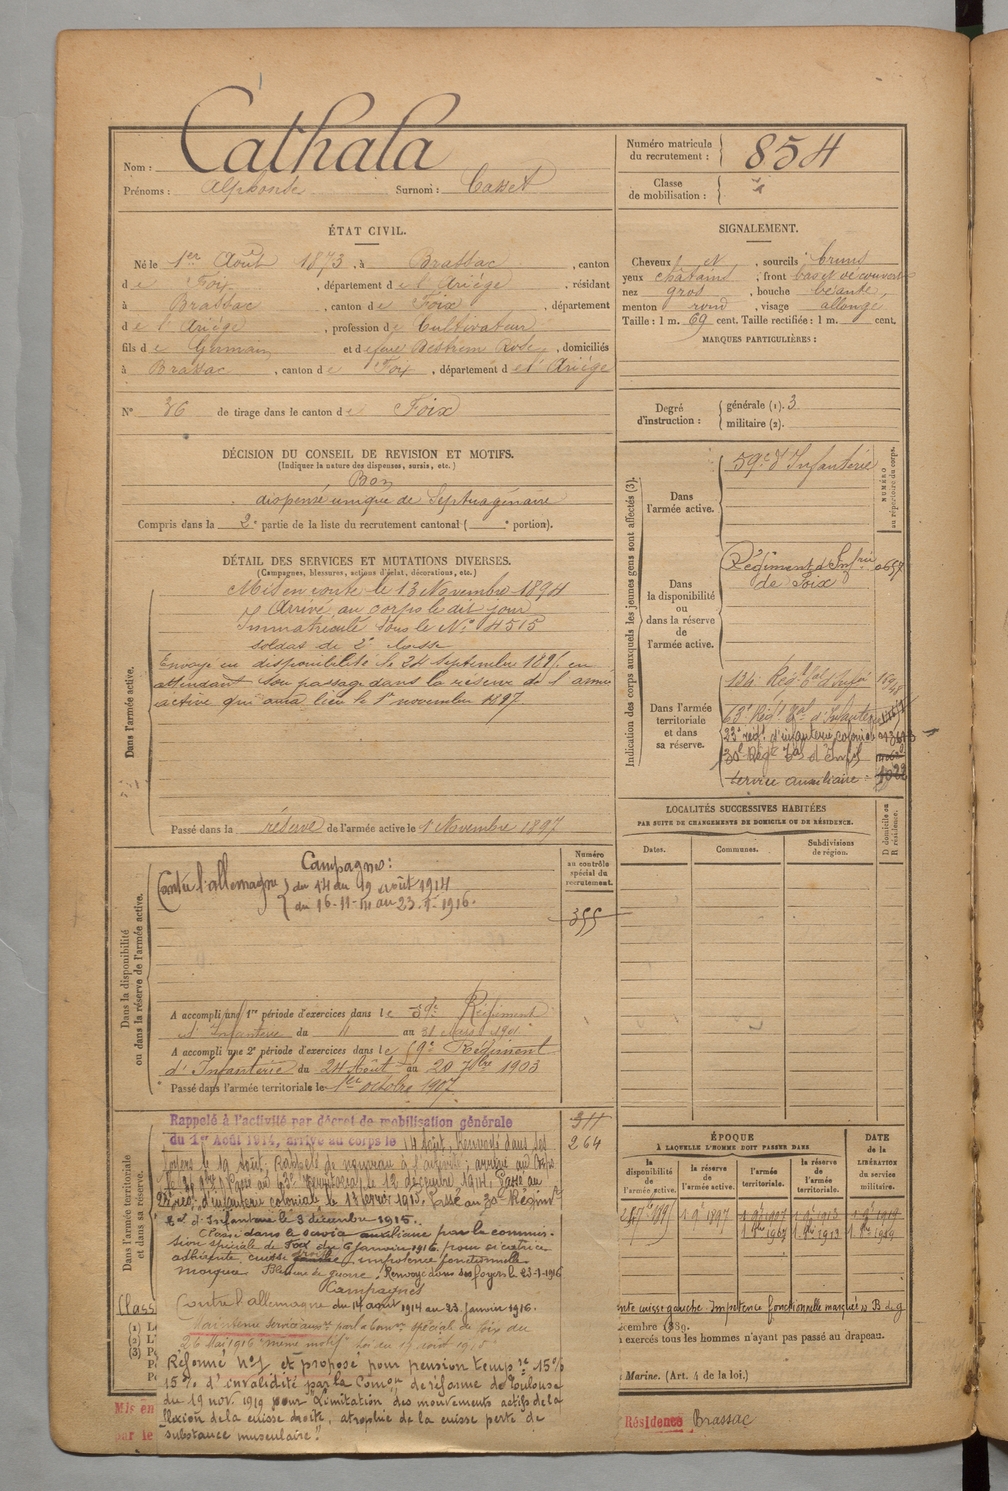 Nom : Cathala
Prénoms : Alphonse Surnom :
Numéro matricule
du recrutement : 854
Classe
de mobilisation :
ÉTAT CIVIL.
Né le 1er Août 1873, à Brassac, canton
de Foix, département de l'Ariège, résidant
à Brassac, canton de Foix, département
de l'Ariège, profession de Cultivateur
fils de Germain et de Rose, domiciliés
à Brassac, canton de Foix, département de l'Ariège
N° 36 de tirage dans le canton de Foix
DÉCISION DU CONSEIL DE REVISION ET MOTIFS.
(Indiquer la nature des dispenses, sursis, etc.)
Bon
dispensé unique de Septuagénaire
Compris dans la 2e partie de la liste du recrutement cantonal ( e portion).
DÉTAIL DES SERVICES ET MUTATIONS DIVERSES.
(Campagnes, blessures, actions d'éclat, décorations, etc.)
Dans l'armée active.
Mis en route le 13 Novembre 1894
Arrivé au corps le dit jour
Immatriculé sous le N° 4515
soldat de 2e classe
Envoyé en disponibilité le 24 Septembre 189 en
attendant son passage dans la réserve de l'armée
active qui aura lieu le 1er novembre 1897
Passé dans la réserve de l'armée active le 1 Novembre 1897
Dans la disponibilité
ou dans la réserve de l'armée active.
Numéro
au contrôle
spécial du
recrutement.
355
Campagnes :
Contre l'allemagne du 14 au 19 août 1914
du 16-11-14 au 23-1-1916.
A accompli une 1re période d'exercices dans le 59e Régiment
d'Infanterie du 4 au 31 mars 1901
A accompli une 2e période d'exercices dans le 59e Régiment
d'Infanterie du 24 Août au 20 7bre 1903
Passé dans l'armée territoriale le 1er octobre 1907
Dans l'armée territoriale
et dans sa réserve.
311
264
Rappelé à l'activité par décret de mobilisation générale
du 1er Août 1914, arrivé au corps le 14 Août, Renvoyé dans ses
foyers le 19 Août, Rappelé de nouveau à l'activité, arrivé au Corps
le Passé au 63e Territorial le 12 décembre 1914. Passé au
22e régt d'infanterie coloniale le 13 février 1915. Passé au 30e Régiment
Eal d'Infanterie le 3 décembre 1915.
Classé dans le service auxiliaire par la commis-
sion spéciale de Foix du 6 janvier 1916 pour cicatrice
adhérente cuisse impotence fonctionnelle
marquée. Blessure de guerre. Renvoyé dans ses foyers le 23-1-1916
Campagnes
Contre l'allemagne du 14 août 1914 au 23 Janvier 1916.
Maintenu Service auxre par la Comon spéciale de Foix du
26 Mai 1916 même motif
Réformé N°1 et proposé pour pension tempre 15%
15% d'invalidité par la Comon de réforme de Toulouse
du 19 nov. 1919 pour "Limitation des mouvements actifs de la
flexion de la cuisse droite, atrophie de la cuisse perte de
substance musculaire."
Class
(1)
(2)
(3)
Mis en
par le
SIGNALEMENT.
Cheveux N, sourcils bruns
yeux châtains, front bas et découvert
nez gros, bouche béante,
menton rond, visage allongé
Taille : 1 m. 69 cent. Taille rectifiée : 1 m. cent.
MARQUES PARTICULIÈRES :
Degré
d'instruction :
générale (1). 3
militaire (2).
Indication des corps auxquels les jeunes gens sont affectés (3).
NUMÉRO
au répertoire du corps.
Dans
l'armée active.
59e d'Infanterie
Dans
la disponibilité
ou
dans la réserve
de
l'armée active.
Régiment d'Infrie
de Foix
Dans l'armée
territoriale
et dans
sa réserve.
134e Régt tal d'Infie
63e Régt Eal d'Infanterie
22e régt d'infanterie coloniale
30e Régt Eal d'Infie
Service auxiliaire
LOCALITÉS SUCCESSIVES HABITÉES
PAR SUITE DE CHANGEMENTS DE DOMICILE OU DE RÉSIDENCE.
D domicile ou
R résidence.
Dates.
Communes.
Subdivisions
de région.
ÉPOQUE
À LAQUELLE L'HOMME DOIT PASSER DANS
DATE
de la
LIBÉRATION
du service
militaire.
la
disponibilité
de
l'armée active.
la réserve
de
l'armée active.
l'armée
territoriale.
la réserve
de l'armée
territoriale.
1 9e 1897
1 9bre 1907
1 9bre 1913
1 9bre 1919
nte cuisse gauche Impotence fonctionnelle marquée B d g
décembre 1889.
exercés tous les hommes n'ayant pas passé au drapeau.
Marine. (Art. 4 de la loi.)
Résidence Brassac